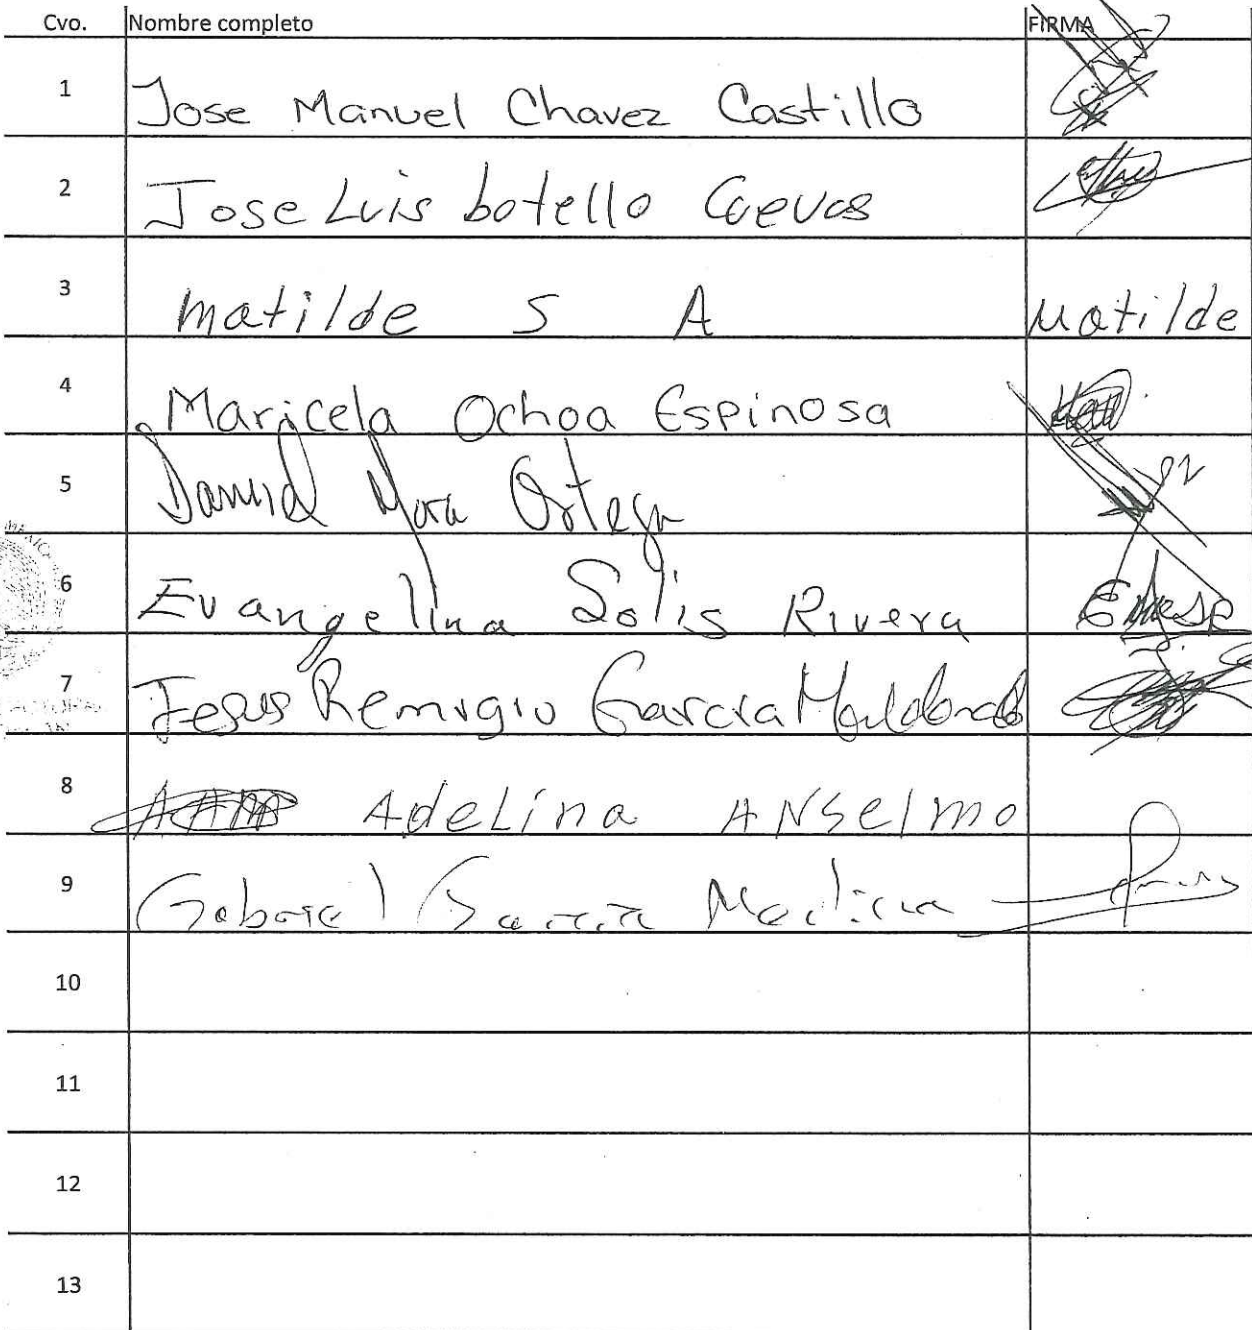 Cvo. Nombre completo FIRMA
1 Jose Manuel Chavez Castillo
2 Jose Luis botello Cuevas
3 matilde S A Matilde
4 Maricela Ochoa Espinosa
5 David Mora Ortega
6 Evangelina Solis Rivera
7 Jesus Remigio Garcia Maldonado
8 Adelina ANselmo
9 Gabriel Garcia Medina
10
11
12
13